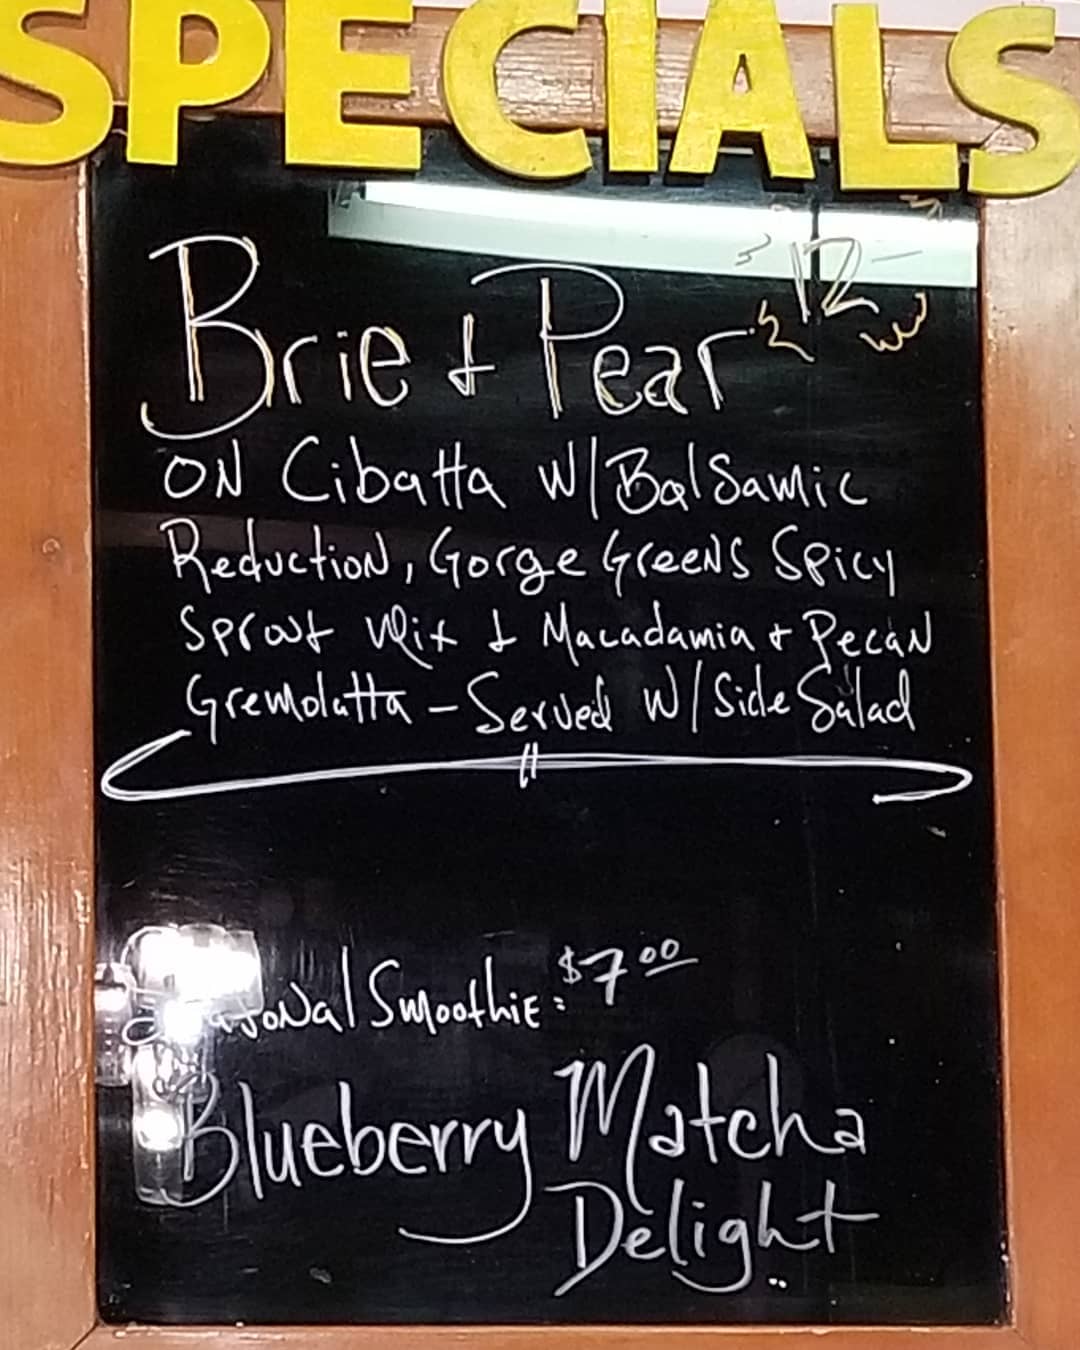 SPECIALS
Brie & Pear 12-
ON Cibatta W/Balsamic
Reduction, Gorge Greens Spicy
Sprout Mix & Macadamia & Pecan
Gremolatta - Served W/Side Salad
Seasonal Smoothie: $7.00
Blueberry Matcha
Delight